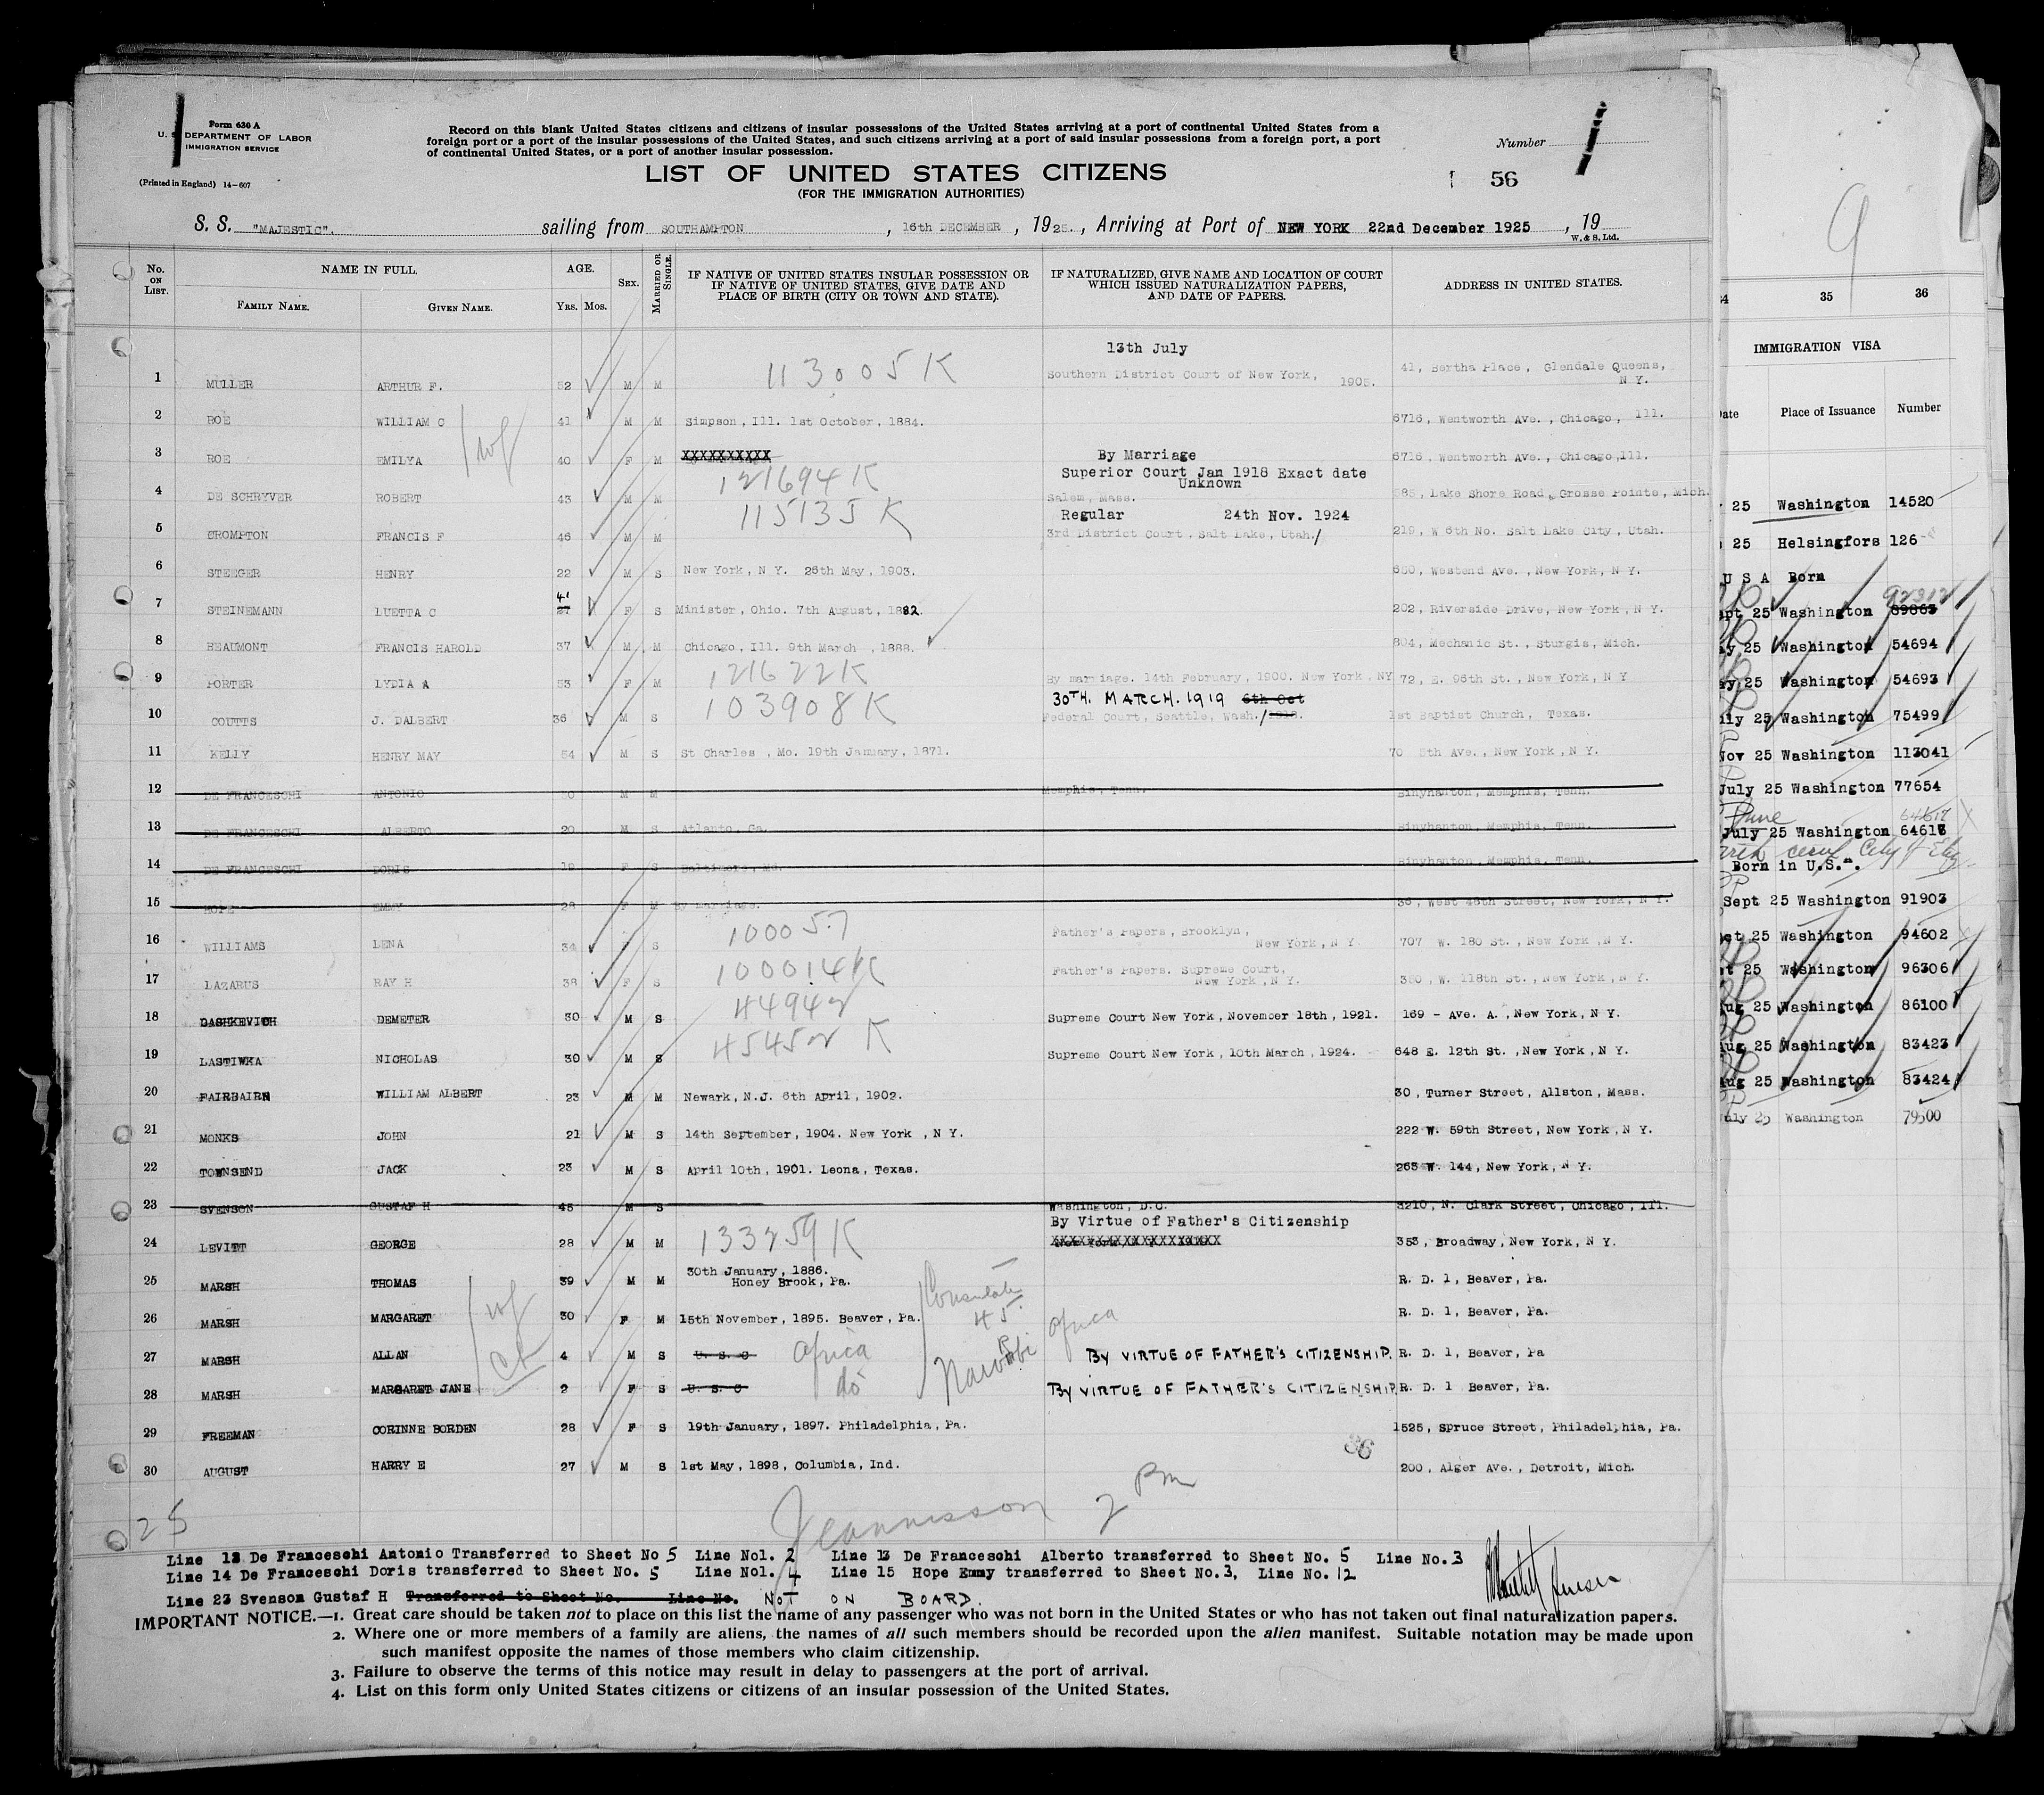 Form 630 A
U. S. DEPARTMENT OF LABOR
IMMIGRATION SERVICE
(Printed in England) 14-607
Record on this blank United States citizens and citizens of insular possessions of the United States arriving at a port of continental United States from a
foreign port or a port of the insular possessions of the United States, and such citizens arriving at a port of said insular possessions from a foreign port, a port
of continental United States, or a port of another insular possession.
Number 1
LIST OF UNITED STATES CITIZENS
(FOR THE IMMIGRATION AUTHORITIES)
56
S. S. "MAJESTIC". sailing from SOUTHAMPTON, 16th DECEMBER, 1925., Arriving at Port of NEW YORK 22nd December 1925, 19
W. & S. Ltd.
No. ON LIST. NAME IN FULL. AGE. SEX. MARRIED OR SINGLE. IF NATIVE OF UNITED STATES INSULAR POSSESSION OR IF NATIVE OF UNITED STATES, GIVE DATE AND PLACE OF BIRTH (CITY OR TOWN AND STATE). IF NATURALIZED, GIVE NAME AND LOCATION OF COURT WHICH ISSUED NATURALIZATION PAPERS, AND DATE OF PAPERS. ADDRESS IN UNITED STATES.
FAMILY NAME. GIVEN NAME. YRS. MOS.
13th July
1 MULLER ARTHUR F. 52 M M 113005 K Southern District Court of New York, 1905. 41, Bertha Place, Glendale Queens, N Y.
2 ROE WILLIAM C 41 M M Simpson, Ill. 1st October, 1884. 6716, Wentworth Ave., Chicago, Ill.
wf
3 ROE EMILYA 40 F M XXXXXXXXXX By Marriage 6716, Wentworth Ave., Chicago, Ill.
Superior Court Jan 1918 Exact date Unknown
4 DE SCHRYVER ROBERT 43 M M 121694 K Salem, Mass. 985, Lake Shore Road, Grosse Points, Mich.
Regular 24th Nov. 1924
5 CROMPTON FRANCIS F 46 M M 115135 K 3rd District Court, Salt Lake, Utah./ 219, W 6th No. Salt Lake City, Utah.
6 STEEGER HENRY 22 M S New York, N Y. 26th May, 1903. 680, Westend Ave., New York, N Y.
7 STEINEMANN LUETTA C 41 27 F S Minister, Ohio. 7th August, 1882. 202, Riverside Drive, New York, N Y.
8 BEAUMONT FRANCIS HAROLD 37 M M Chicago, Ill. 9th March, 1888. 804, Mechanic St., Sturgis, Mich.
9 PORTER LYDIA A 53 F M 121622K By marriage. 14th February, 1900. New York, NY 72, E. 96th St., New York, N Y
30TH. MARCH. 1919 6th Oct
10 COUTTS J. DALBERT 36 M S 103908K Federal Court, Seattle, Wash./ 1918. 1st Baptist Church, Texas.
11 KELLY HENRY MAY 54 M S St Charles, Mo. 19th January, 1871. 70 5th Ave., New York, N Y.
12 DE FRANCESCHI ANTONIO 50 M M Memphis, Tenn. Binyhanton, Memphis, Tenn.
13 DE FRANCESCHI ALBERTO 20 M S Atlanto, Ga. Binyhanton, Memphis, Tenn.
14 DE FRANCESCHI DORIS 19 F S Baltimore, Md. Binyhanton, Memphis, Tenn.
15 HOPE EMMY 28 F M By marriage. 36, West 48th Street, New York, N Y.
16 WILLIAMS LENA 34 F S 100057 Father's Papers, Brooklyn, New York, N Y. 707 W. 180 St., New York, N Y.
17 LAZARUS RAY H 38 F S 100014K Father's Papers. Supreme Court, New York, N Y. 380, W. 118th St., New York, N Y.
18 DASHKEVICH DEMETER 30 M S 44942 Supreme Court New York, November 18th, 1921. 169 - Ave. A., New York, N Y.
19 LASTIWKA NICHOLAS 30 M S 45452 K Supreme Court New York, 10th March, 1924. 648 E. 12th St., New York, N Y.
20 FAIRBAIRN WILLIAM ALBERT 23 M M Newark, N.J. 6th April, 1902. 30, Turner Street, Allston, Mass.
21 MONKS JOHN 21 M S 14th September, 1904. New York, N Y. 222 W. 59th Street, New York, N Y.
22 TOWNSEND JACK 23 M S April 10th, 1901. Leona, Texas. 265 W. 144, New York, N Y.
23 SVENSON GUSTAF H 45 M S Washington, D.C. 3210, N. Clark Street, Chicago, Ill.
By Virtue of Father's Citizenship
24 LEVITT GEORGE 28 M M 133259 K XXXXXXXXXXXXXXXXXXX 353, Broadway, New York, N Y.
25 MARSH THOMAS 39 M M 30th January, 1886. Honey Brook, Pa. R. D. 1, Beaver, Pa.
wf Consulate 45
26 MARSH MARGARET 30 F M 15th November, 1895. Beaver, Pa. Africa R. D. 1, Beaver, Pa.
ch Nairobi
27 MARSH ALLAN 4 M S U. S. C Africa BY VIRTUE OF FATHER'S CITIZENSHIP. R. D. 1, Beaver, Pa
28 MARSH MARGARET JANE 2 F S U. S. C do BY VIRTUE OF FATHER'S CITIZENSHIP. R. D. 1 Beaver, Pa.
29 FREEMAN CORINNE BORDEN 28 F S 19th January, 1897. Philadelphia, Pa. 1525, Spruce Street, Philadelphia, Pa.
36
30 AUGUST HARRY E 27 M S 1st May, 1898, Columbia, Ind. 200, Alger Ave., Detroit, Mich.
25
Jeannisson 2 PM
Line 12 De Franceschi Antonio Transferred to Sheet No 5 Line No1. 2 Line 13 De Franceschi Alberto transferred to Sheet No. 5 Line No. 3
Line 14 De Franceschi Doris transferred to Sheet No. 5 Line No1. 4 Line 15 Hope Emmy transferred to Sheet No. 3, Line No. 12
Line 23 Svenson Gustaf H Transferred to Sheet No. Line No. NOT ON BOARD.
IMPORTANT NOTICE.—1. Great care should be taken not to place on this list the name of any passenger who was not born in the United States or who has not taken out final naturalization papers.
2. Where one or more members of a family are aliens, the names of all such members should be recorded upon the alien manifest. Suitable notation may be made upon
such manifest opposite the names of those members who claim citizenship.
3. Failure to observe the terms of this notice may result in delay to passengers at the port of arrival.
4. List on this form only United States citizens or citizens of an insular possession of the United States.
9
34 35 36
IMMIGRATION VISA
Date Place of Issuance Number
25 Washington 14520
25 Helsingfors 126
U S A Born
92312
Sept 25 Washington 89863
25 Washington 54694
25 Washington 54693
July 25 Washington 75499
Nov 25 Washington 113041
July 25 Washington 77654
June 64617
July 25 Washington 64618
Born in U.S.".
Sept 25 Washington 91903
Oct 25 Washington 94602
25 Washington 96306
Aug 25 Washington 86100
Aug 25 Washington 83423
Aug 25 Washington 83424
July 25 Washington 79500